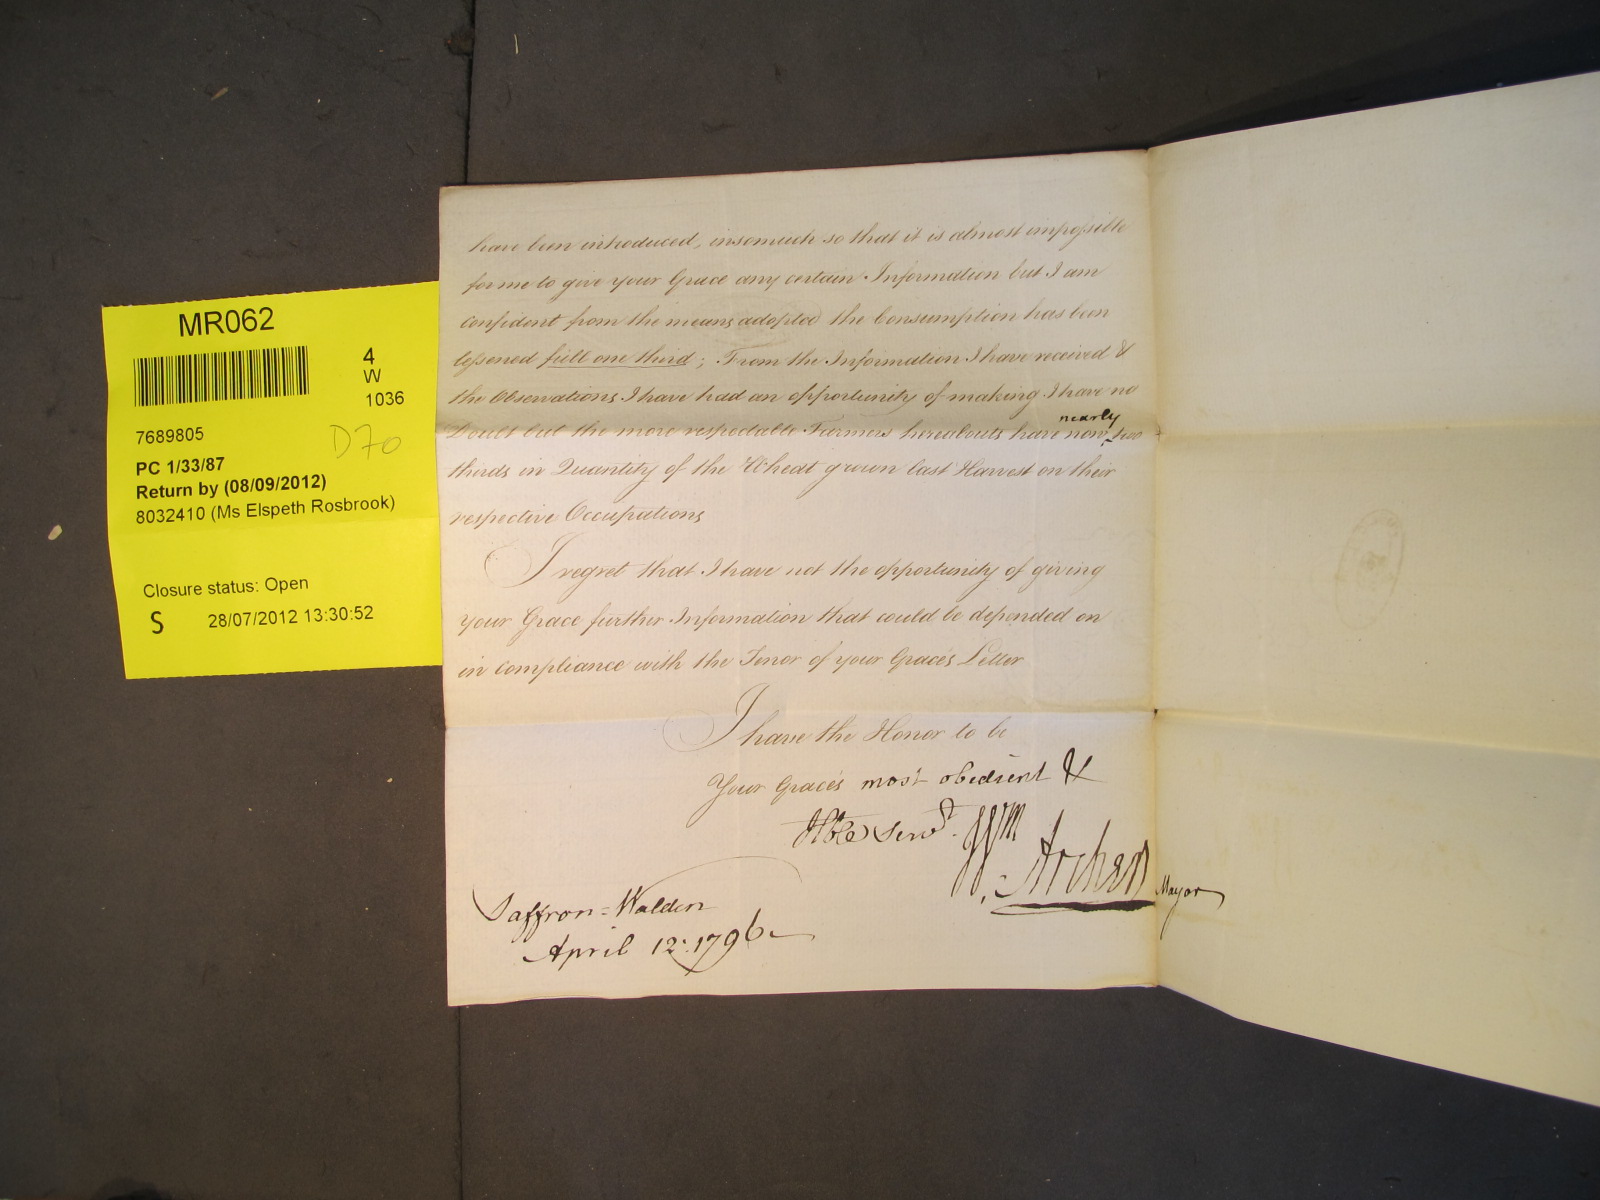 MR062
4
W
1036
7689805
D70
PC 1/33/87
Return by (08/09/2012)
8032410 (Ms Elspeth Rosbrook)
Closure status: Open
S 28/07/2012 13:30:52
have been introduced, insomuch so that it is almost impossible
for me to give your Grace any certain Information but I am
confident from the means adopted the Consumption has been
lessened full one third; From the Information I have received &
the Observations I have had an opportunity of making I have no
Doubt but the more respectable Farmers hereabouts have now nearly two
thirds in Quantity of the Wheat grown last Harvest on their
respective Occupations
I regret that I have not the opportunity of giving
your Grace further Information that could be depended on
in compliance with the Tenor of your Grace's Letter
I have the Honor to be
Your Grace's most obedient &
Hble Servt. Wm
Archer Mayor
Saffron=Walden
April 12. 1796